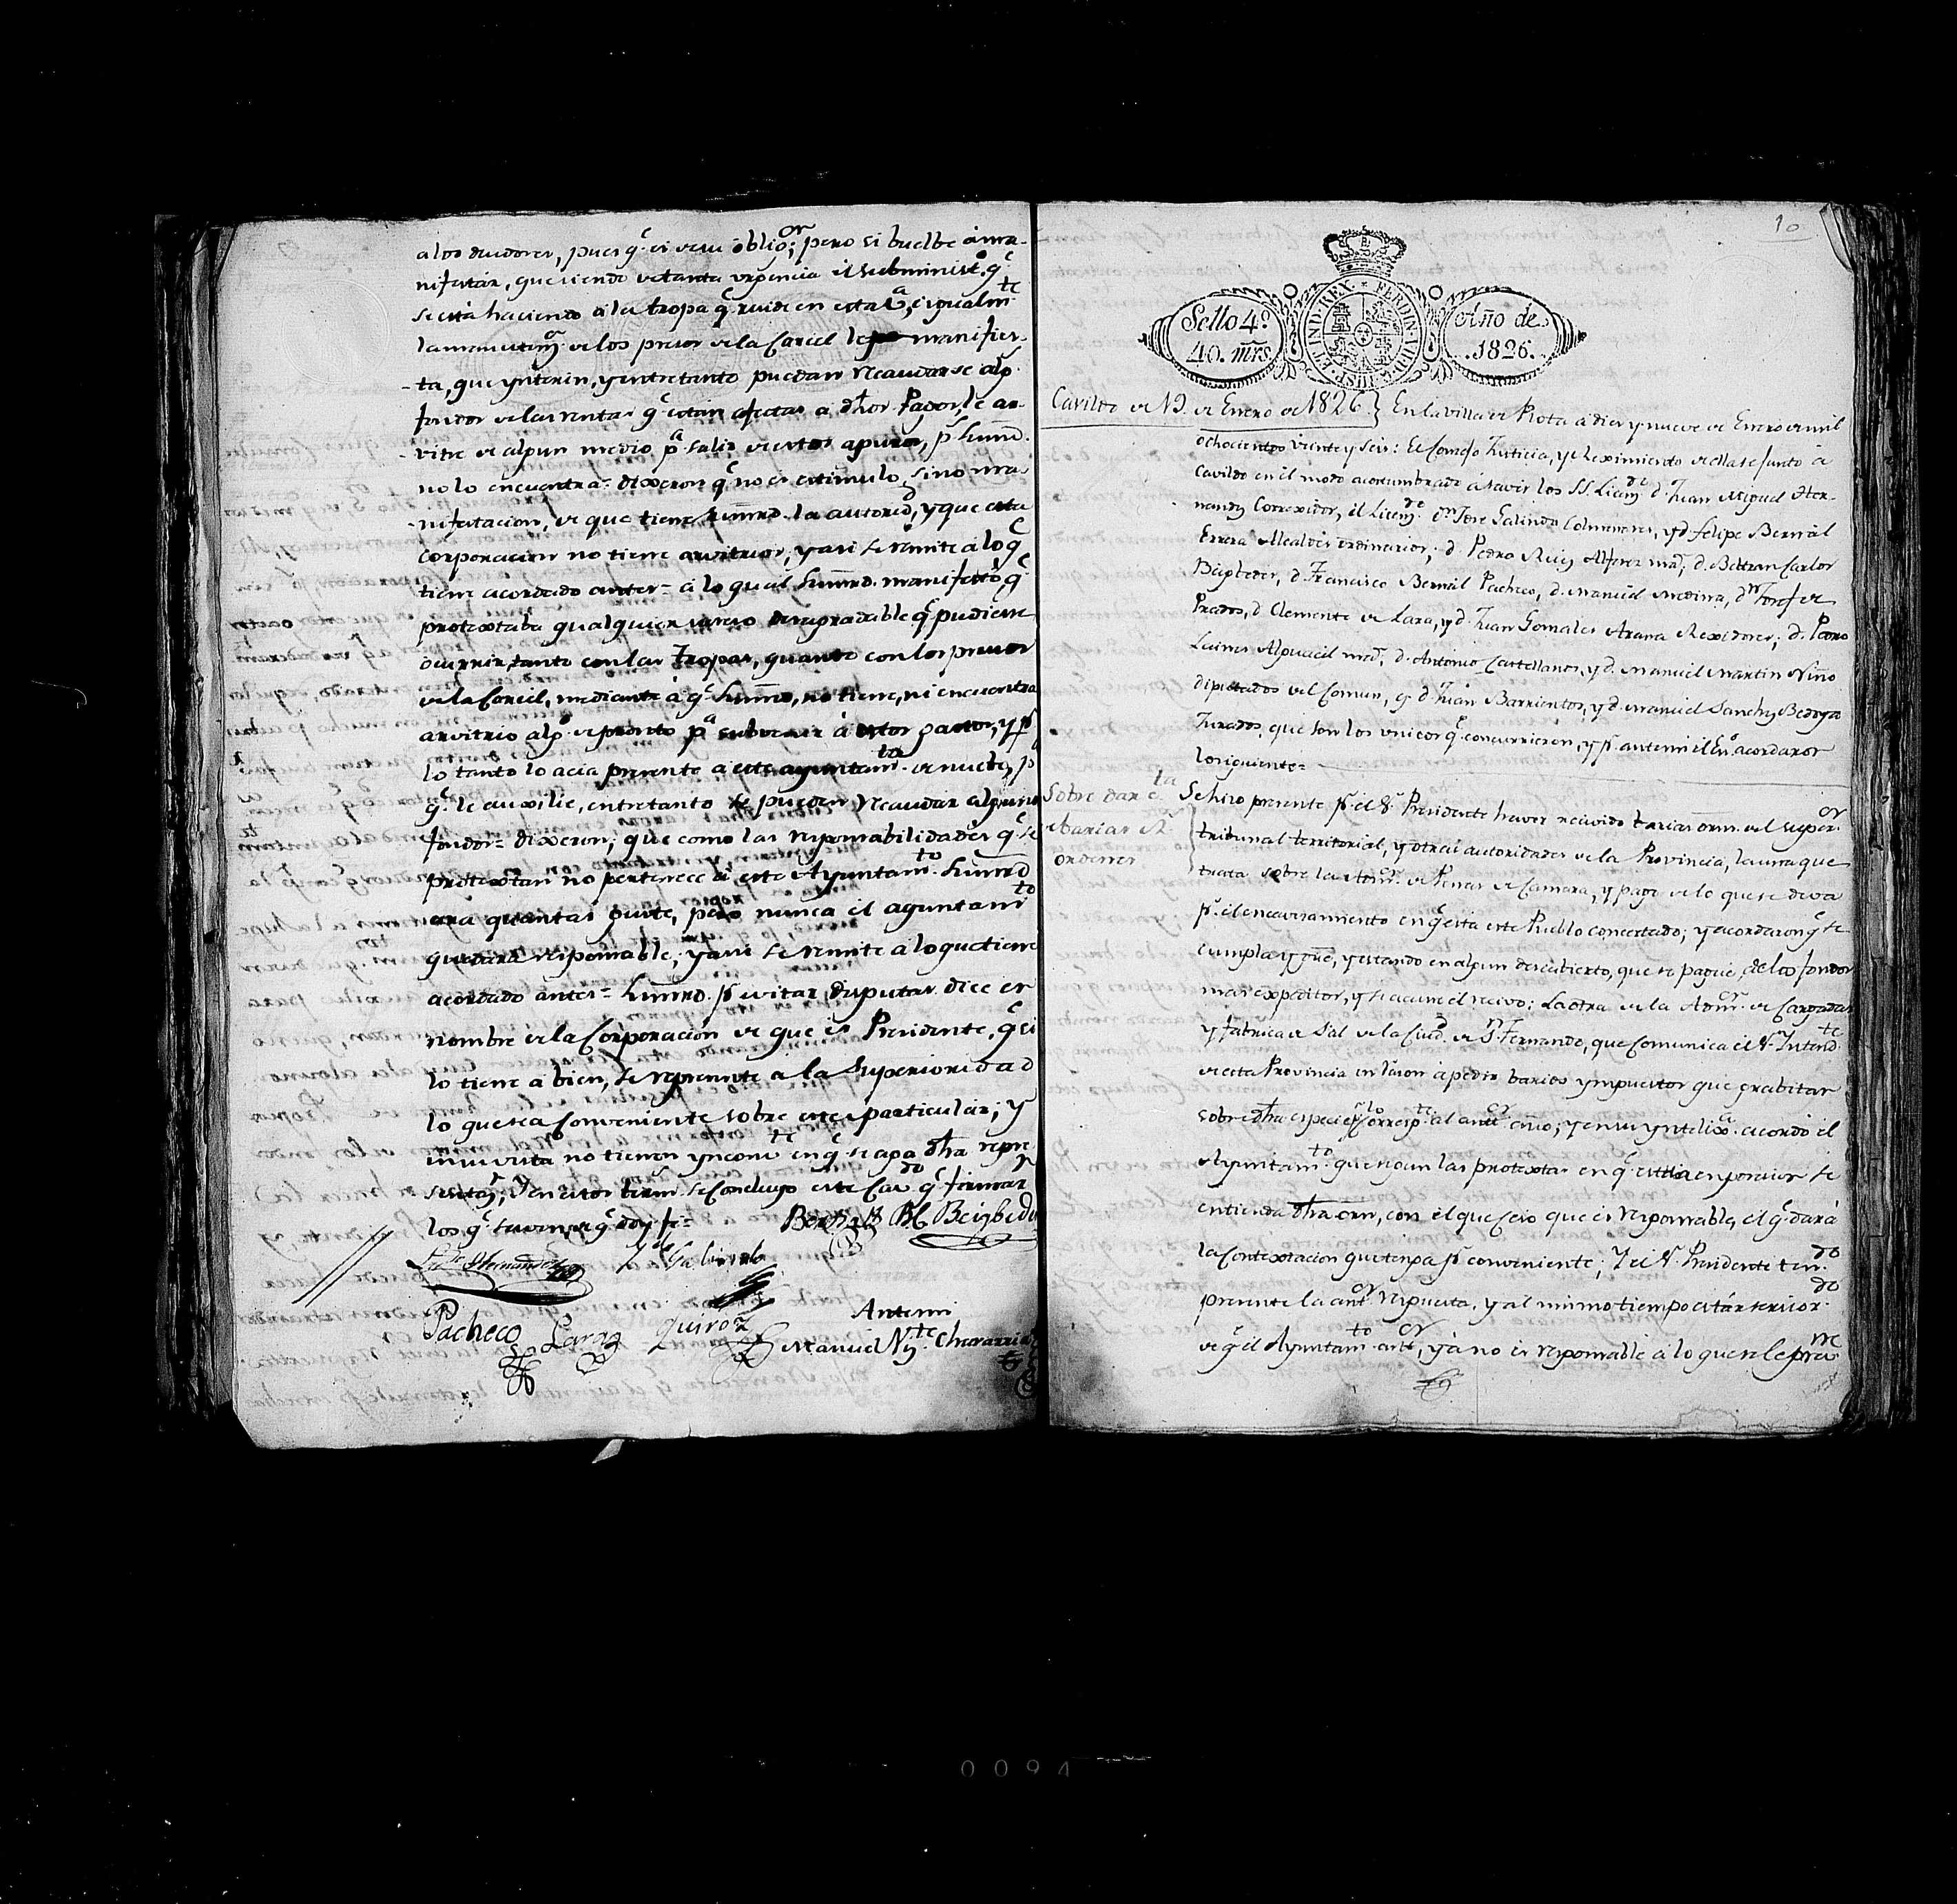 a los deudores, pues q.e es de su oblig.on; pero si buelbe á ma-
nifestar, que siendo de tanta urgencia el subminist.o q.e
se está haciendo á la tropa q.e reside en esta V.a, é igualm.te
la manutenz.n de los presos de la Carcel les manifies-
-ta, que ynterin, y entretanto puedan recaudarse alg.s
fondos de las rentas q.e estan afectas á dhos Pagos, le ar-
-vitre de algun medio p.a salir de estos apuros, p.s Su md.
no lo encuentra = dixeron q.e no es estimulo, sino ma-
-nifestacion, de que tiene Su md. la autorid.d, y que esta
Corporacion no tiene arvitrios, y asi se remite á lo q.e
tiene acordado antes = á lo qual Su md. manifestó q.e
protextaba qualquier suceso desagradable q.e pudiese
ocurrir, tanto con las Tropas, quanto con los presos
de la Carcel, mediante á q.e Su md. no tiene, ni encuentra
arvitrio alg.o de pronto p.a subvenir á estos gastos, y p.r
lo tanto lo acia presente a este ayuntam.to de nuebo, p.a
q.e le auxilie, entretanto se pueden recaudar algunos
fondos = dixeron; que como las responsabilidades q.e se
protextan no pertenece á este Ayuntam.to Su md.
ara quantas guste, pero nunca el ayuntam.to
quedará responsable; y asi se remite a lo que tiene
acordado antes = Su md. p.r evitar disputas dice en
nombre de la Corporacion de que es Presidente, q.e si
lo tiene á bien, se represente a la Superioridad
lo que sea Conveniente sobre este particular; y
en su vista no tienen ynconv.te en q.e se aga dha repre-
sentaz.n; Y en estos term.s se Concluyo este Cav.do q.e firman
los q.e saven, de q.e doy fe =
Bertran C. Beigbeder
L.do Hernandez
Galindo
Pacheco Lara Quiroz
Antemi
Manuel V.te Chavarria
10
Sello 4.º
40. mrs
FERDIN. VII. D. G. HISP. ET IND. REX.
Año de
.1826.
Cavildo de 19. de Enero de 1826. } En la villa de Rota á diez y nueve de Enero de mil
ochocientos veinte y seis: El Consejo Justicia, y Reximiento de ella se junto á
Cavildo en el modo acostumbrado á saver los SS. Licen.do d. Juan Miguel Her-
nandez Correxidor, el Licen.do d.n Jose Galindo Colmenares, y d. Felipe Bernal
Errera Alcaldes ordinarios; d. Pedro Ruiz Alferez m.r, d. Beltran Carlos
Beigbeder, d. Francisco Bernal Pacheco, d. Manuel Medina, d.n Josef de
Prados, d. Clemente de Lara, y d. Juan Gonzales Arana Rexidores; d. Pedro
Lainez Alguacil m.r; d. Antonio Castellanos, y d. Manuel Martin Niño
diputados del Comun, y d. Juan Barrientos, y d. Manuel Sanchez Bedoya
Jurados, que son los unicos q.e concurrieron, y p.r antemi el Es.no acordaron
lo siguiente =
Sobre dar c.ta
de barias R.s
ordenes
Se hizo presente p.r el S.r Presidente haver recivido barias orn.s del super.or
tribunal territorial, y otras autoridades de la Provincia, la una que
trata sobre la Adm.on de Penas de Camara, y pago de lo que se deva
p.r el encavezamiento en q.e está este Pueblo concertado; y acordaron q.e se
cumpla y gue, y estando en algun descubierto, que se pague, de los fondos
mas expeditos, y se acuse el recivo: La otra de la Adm.on de Cargados
y fabrica de Sal de la Ciud.d de S.n Fernando, que comunica el S.r Intend.te
de esta Provincia en razon a pedir barios ympuestos que grabitan
sobre dha especie, y lo corresp.te al ant.or año; y en su yntelix.a acordó el
Ayuntam.to que segun las protextas en q.e está en posecion se
entienda dha orn, con el que Ceso que es responsable, el q.e dará
la Contextacion que tenga p.r conveniente; Y el S.r Presidente ten.do
presente la ant.or respuesta, y al mismo tiempo estár sercior.do
de q.e el Ayuntam.to ant.or, yá no es responsable á lo que se le prev.ne
0094